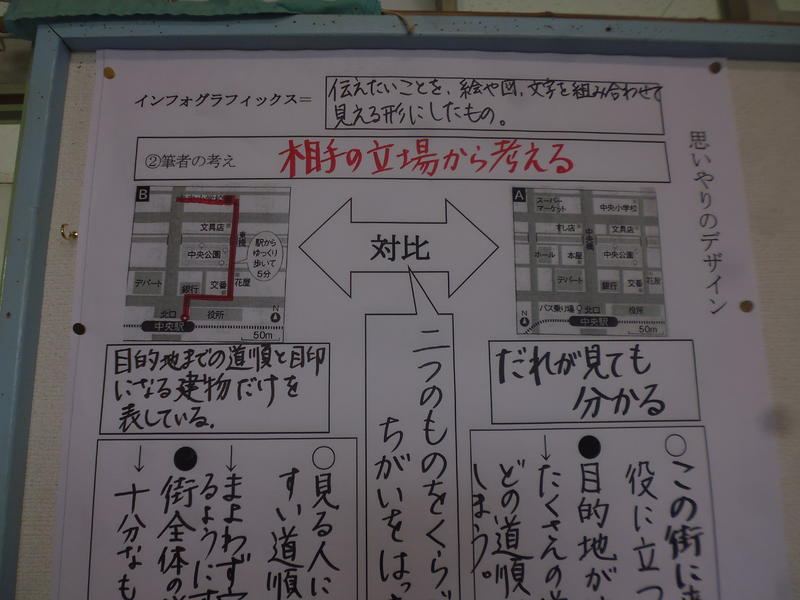 インフォグラフィックス＝
伝えたいことを、絵や図、文字を組み合わせて
見える形にしたもの。
思いやりのデザイン
②筆者の考え
相手の立場から考える
A
スーパー
マーケット
中央小学校
すし店
文具店
中央橋
ホール
本屋
中央公園
デパート
銀行
交番
花屋
バス乗り場
北口
役所
中央駅
N
50m
対比
B
文具店
中央公園
駅から
ゆっくり
歩いて
5分
デパート
銀行
交番
花屋
北口
役所
中央駅
N
50m
だれが見ても
分かる
目的地までの道順と目印
になる建物だけを
表している。
○この街に
役に立つ
●目的地が
↓たくさんの
どの道順
しまう。
二つのものをくら
ちがいをはっ
○見る人に
すい道順
↓まよわず
るように
●街全体の
↓十分なも